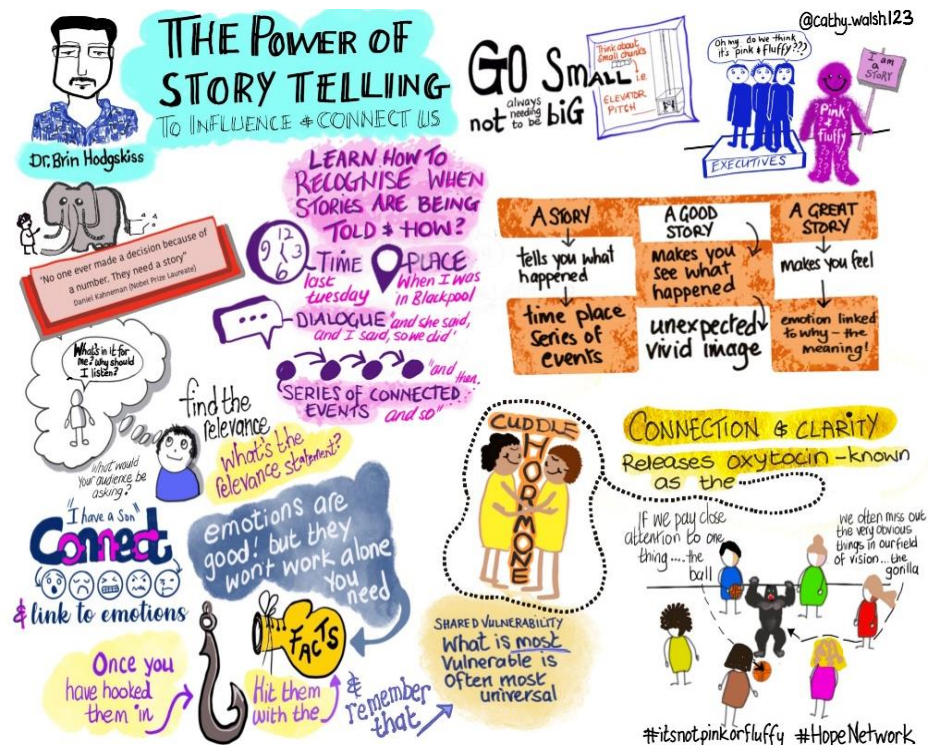 @cathy_walsh123
THE POWER OF
STORY TELLING
TO INFLUENCE & CONNECT US
Dr. Brin Hodgskiss
GO SMALL
not always needing to be biG
Think about
small chunks
i.e.
ELEVATOR
PITCH
Oh my do we think
it's pink & fluffy???
EXECUTIVES
I am
a
STORY
Pink
&
fluffy
"No one ever made a decision because of
a number. They need a story"
Daniel Kahneman (Nobel Prize Laureate)
LEARN HOW TO
RECOGNISE WHEN
STORIES ARE BEING
TOLD & HOW?
12
9 3
6
TIME
last
tuesday
PLACE
When I was
in Blackpool
DIALOGUE "and she said,
and I said, so we did"
"and
then..
SERIES OF CONNECTED
EVENTS and so"
A STORY
tells you what
happened
time place
series of
events
A GOOD
STORY
makes you
see what
happened
unexpected
vivid image
A GREAT
STORY
makes you feel
emotion linked
to why - the
meaning!
What's in it for
me? Why should
I listen?
What would
your audience be
asking?
find the
relevance
What's the
relevance statement?
"I have a Son"
Connect
& link to emotions
emotions are
good! but they
won't work alone
you
need
FACTS
Once you
have hooked
them in
Hit them
with the
& remember
that
CUDDLE
HORMONE
SHARED VULNERABILITY
What is most
Vulnerable is
Often most
universal
CONNECTION & CLARITY
Releases oxytocin - known
as the
If we pay close
attention to one
thing.....the
ball
we often miss out
the very obvious
things in our field
of vision...the
gorilla
#itsnotpinkorfluffy #HopeNetwork